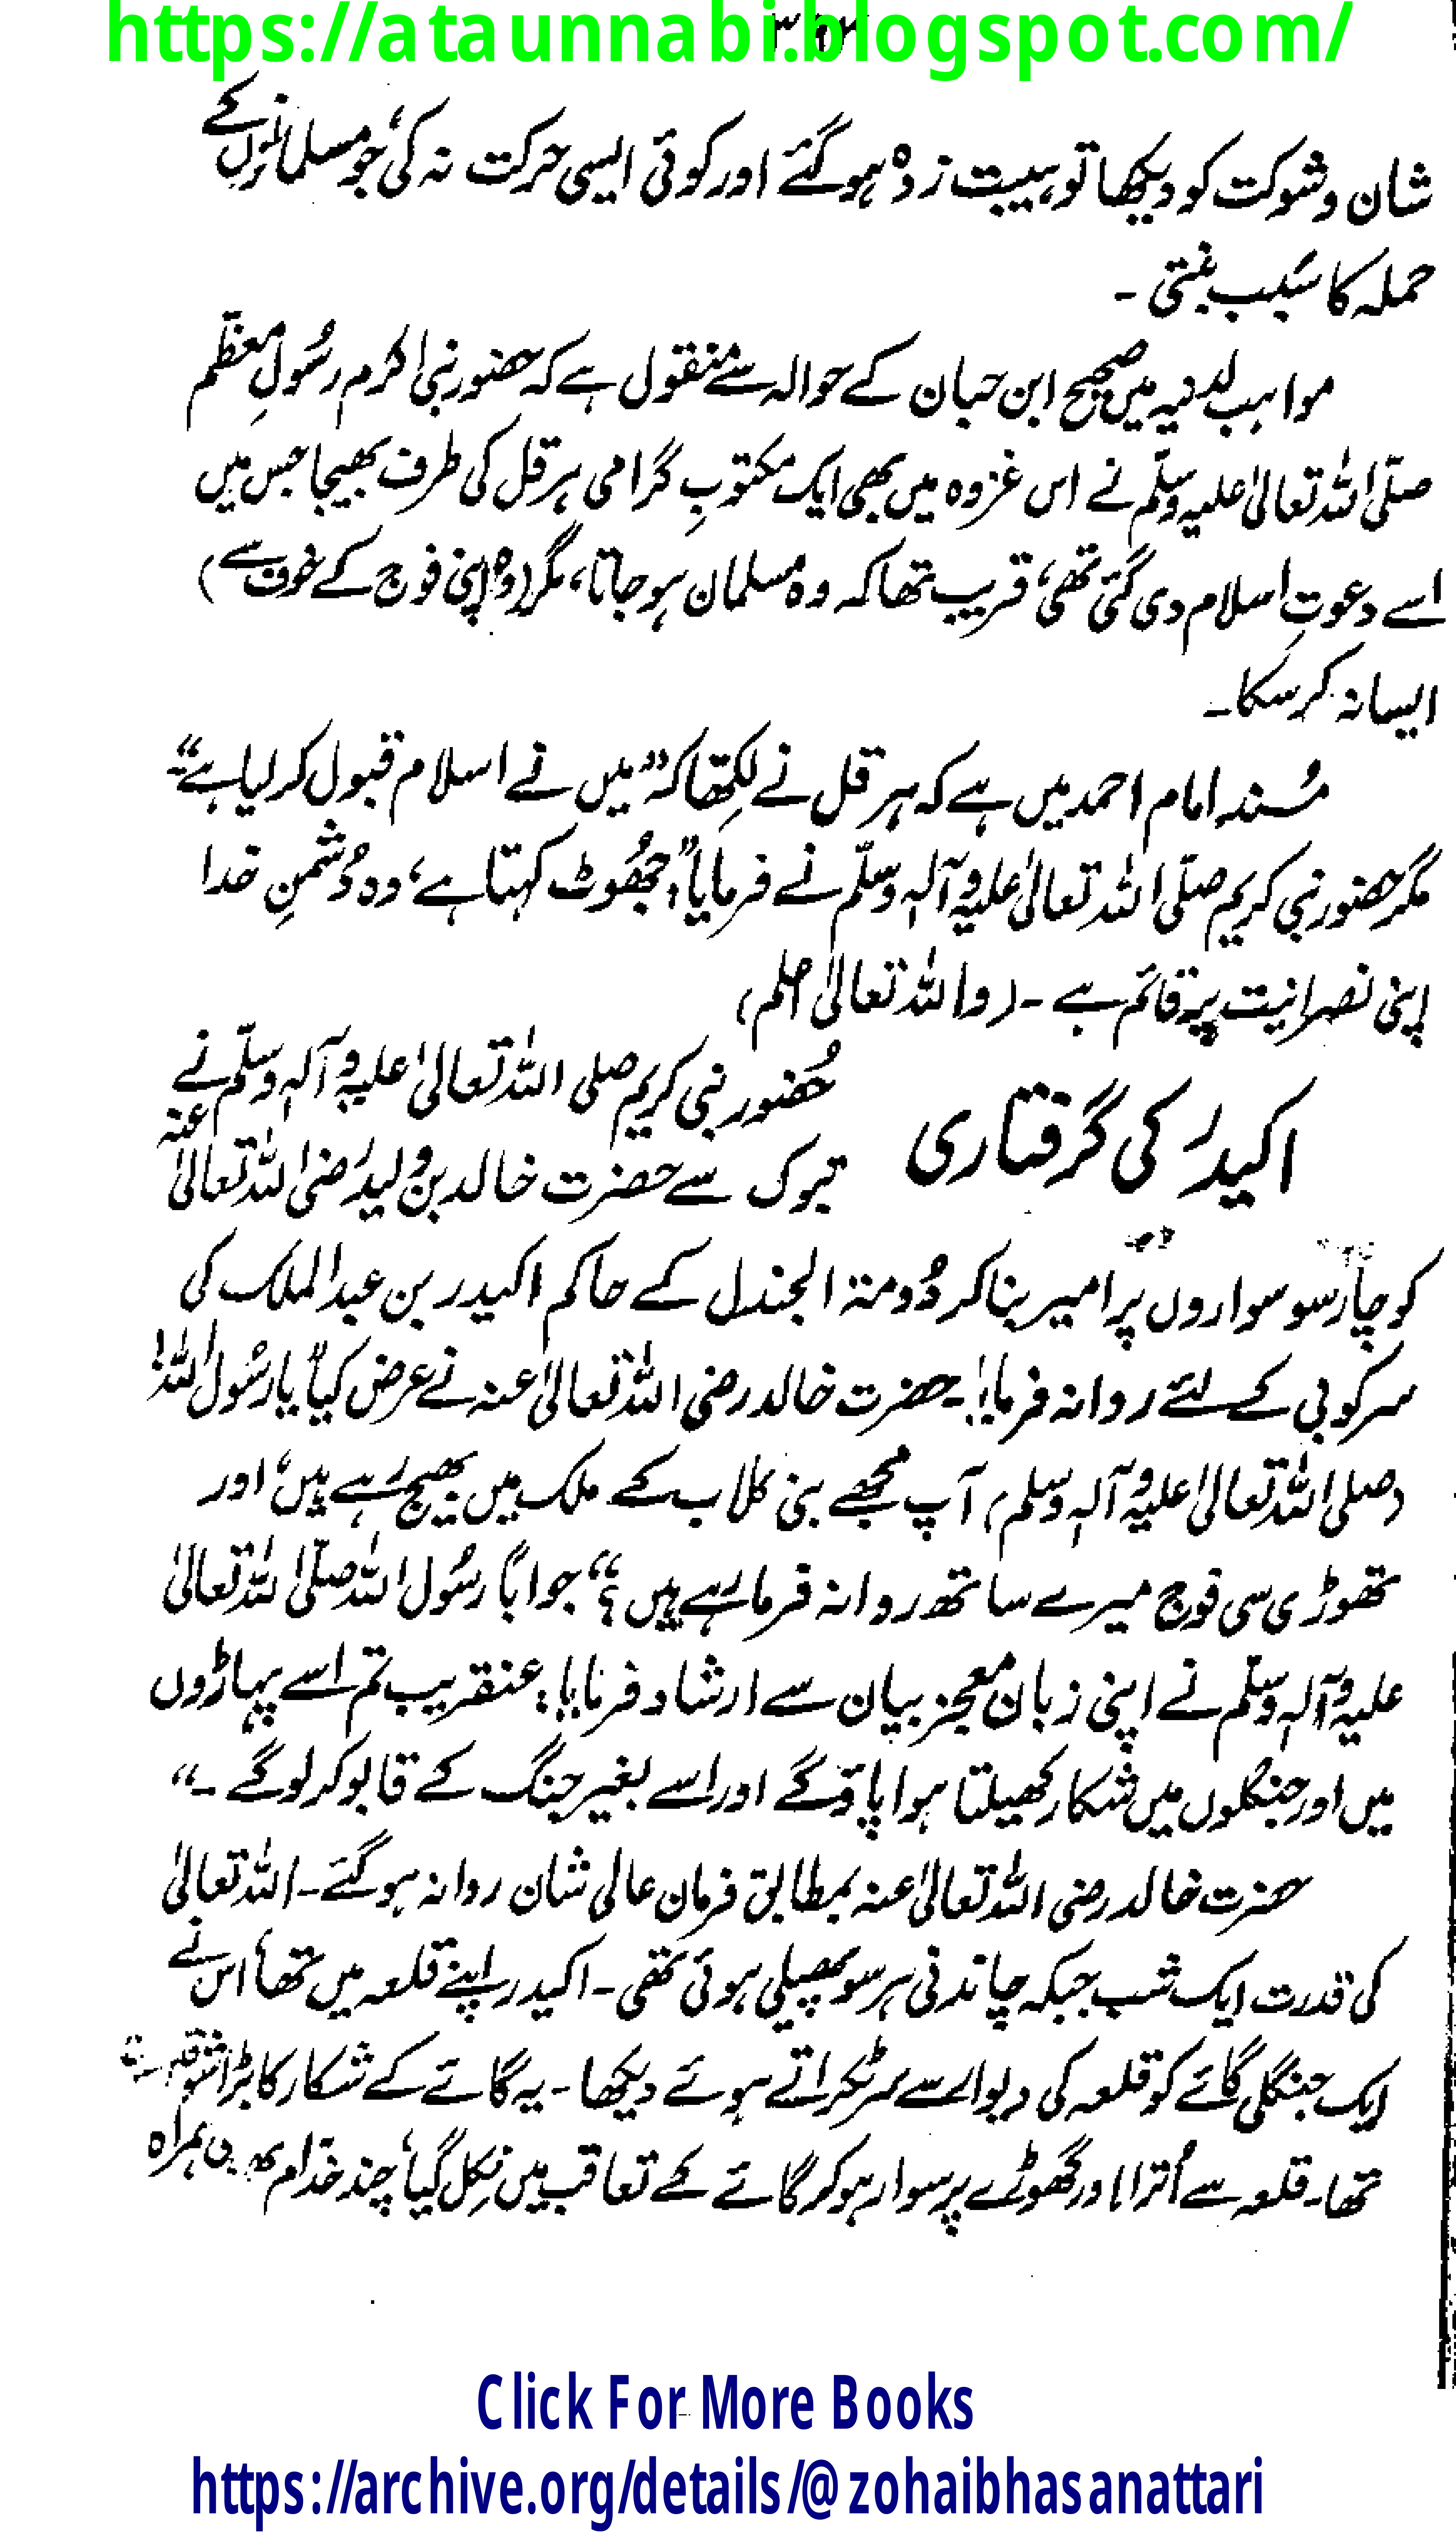 https://ataunnabi.blogspot.com/
شان و شوکت کو دیکھا تو ہیبت زدہ ہو گئے اور کوئی ایسی حرکت نہ کی، جو مسلمانوں کے
حملہ کا سبب بنتی ۔
مواہب لدنیہ میں صحیح ابن حبان کے حوالہ سے منقول ہے کہ حضور نبی اکرم رسُولِ معظّم
صلّی اللہ تعالیٰ علیہ وسلّم نے اس غزوہ میں بھی ایک مکتوبِ گرامی ہرقل کی طرف بھیجا جس میں
اسے دعوتِ اسلام دی گئی تھی، قریب تھا کہ وہ مسلمان ہو جاتا، مگر (وہ اپنی فوج کے خوف سے)
ایسا نہ کر سکا۔
مُسند امام احمد میں ہے کہ ہرقل نے لکھا کہ "میں نے اسلام قبول کر لیا ہے"۔
مگر حضور نبی کریم صلّی اللہ تعالیٰ علیہ وآلہٖ وسلّم نے فرمایا: "جھُوٹ کہتا ہے، وہ دُشمنِ خدا
اپنی نصرانیت پر قائم ہے ۔ (واللہ تعالیٰ اعلم)
اکیدر کی گرفتاری
حُضور نبی کریم صلی اللہ تعالیٰ علیہ وآلہٖ وسلّم نے
تبوک سے حضرت خالد بن ولید رضی اللہ تعالیٰ عنہ
کو چار سو سواروں پر امیر بنا کر دُومۃ الجندل کے حاکم اکیدر بن عبدالملک کی
سرکوبی کے لئے روانہ فرمایا۔ حضرت خالد رضی اللہ تعالیٰ عنہ نے عرض کیا "یا رسُول اللہ!
(صلی اللہ تعالیٰ علیہ وآلہٖ وسلم) آپ مجھے بنی کلاب کے ملک میں بھیج رہے ہیں، اور
تھوڑی سی فوج میرے ساتھ روانہ فرما رہے ہیں؟" جواباً رسُول اللہ صلّی اللہ تعالیٰ
علیہ وآلہٖ وسلّم نے اپنی زبان معجز بیان سے ارشاد فرمایا: عنقریب تم اسے پہاڑوں
میں اور جنگلوں میں شکار کھیلتا ہوا پاؤ گے اور اسے بغیر جنگ کے قابو کر لو گے ۔"
حضرت خالد رضی اللہ تعالیٰ عنہ بمطابق فرمان عالی شان روانہ ہو گئے۔ اللہ تعالیٰ
کی قدرت ایک شب جبکہ چاندنی ہر سو پھیلی ہوئی تھی۔ اکیدر اپنے قلعہ میں تھا، اس نے
ایک جنگلی گائے کو قلعہ کی دیوار سے سر ٹکراتے ہوئے دیکھا ۔ یہ گائے کے شکار کا بڑا شوقین
تھا۔ قلعہ سے اُترا اور گھوڑے پر سوار ہو کر گائے کے تعاقب میں نکل گیا، چند خدّام بھی ہمراہ
Click For More Books
https://archive.org/details/@zohaibhasanattari